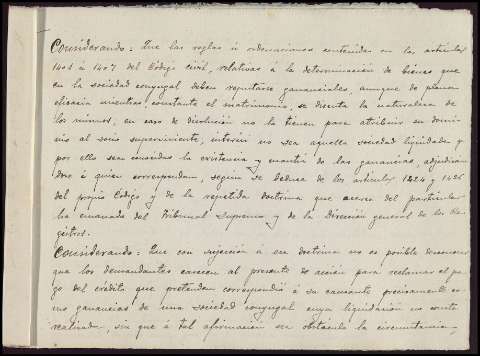 Considerando: Que las reglas ú ordenaciones contenidas en los artículos
1401 á 1407 del Código civil, relativas á la determinación de bienes que
en la sociedad conyugal deben reputarse gananciales, aunque de plena
eficacia mientras, constante el matrimonio, se discuta la naturaleza de
los mismos, en caso de disolución no la tienen para atribuir su domi-
nio al socio superviviente, interin no sea aquella sociedad liquidada y
por ello sea conocida la existencia y cuantía de las ganancias, adjudicán
dose á quien correspondan, según se deduce de los artículos 1424 y 1426
del propio Código y de la repetida doctrina que acerca del particular
ha emanado del Tribunal Supremo y de la Dirección general de los Re-
gistros.
Considerando: Que con sujeción á esa doctrina no es posible desconocer
que los demandantes carecen al presente de acción para reclamar el pa-
go del crédito que pretenden correspondió á su causante precisamente co-
mo ganancias de una sociedad conyugal cuya liquidación no consta
realizada, sin que á tal afirmación sea obstáculo la circunstancia